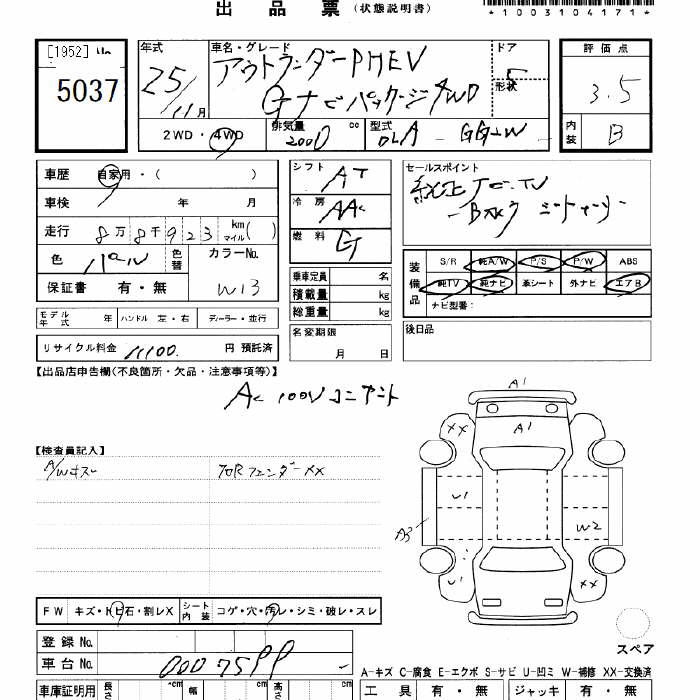 出品票 (状態説明書)
*1003104171*
[1952]
5037
年式 25/11月
車名・グレード アウトランダーPHEV
Gナビパッケージ 4WD
ドア 5
形状
評価点 3.5
内装 B
2WD・4WD
排気量 2000 cc
型式 DLA-GG2W
車歴 自家用・( )
車検 年 月
走行 8万8千923 km マイル( )
色 パール
色替
カラーNo. W13
保証書 有・無
シフト AT
冷房 AAC
燃料 G
乗車定員 名
積載量 kg
総重量 kg
セールスポイント
純正ナビ・TV
装備品
S/R 純A/W P/S P/W ABS
純TV 純ナビ 革シート 外ナビ エアB
ナビ型番:
モデル年式 年
ハンドル 左・右
ディーラー・並行
名変期限 月 日
後日品
リサイクル料金 11100. 円 預託済
【出品店申告欄(不良箇所・欠品・注意事項等)】
AC 100V コンセント
【検査員記入】
A/Wキズ
フロRフェンダーXX
A1
A1
XX
U1
W2
A3
U1
XX
スペア
FW キズ・トビ石・割レX
シート内装 コゲ・穴・汚レ・シミ・破レ・スレ
登録 No.
車台 No.
A-キズ C-腐食 E-エクボ S-サビ U-凹ミ W-補修 XX-交換済
車庫証明用 長さ cm 幅 cm 高さ cm
工具 有・無 ジャッキ 有・無